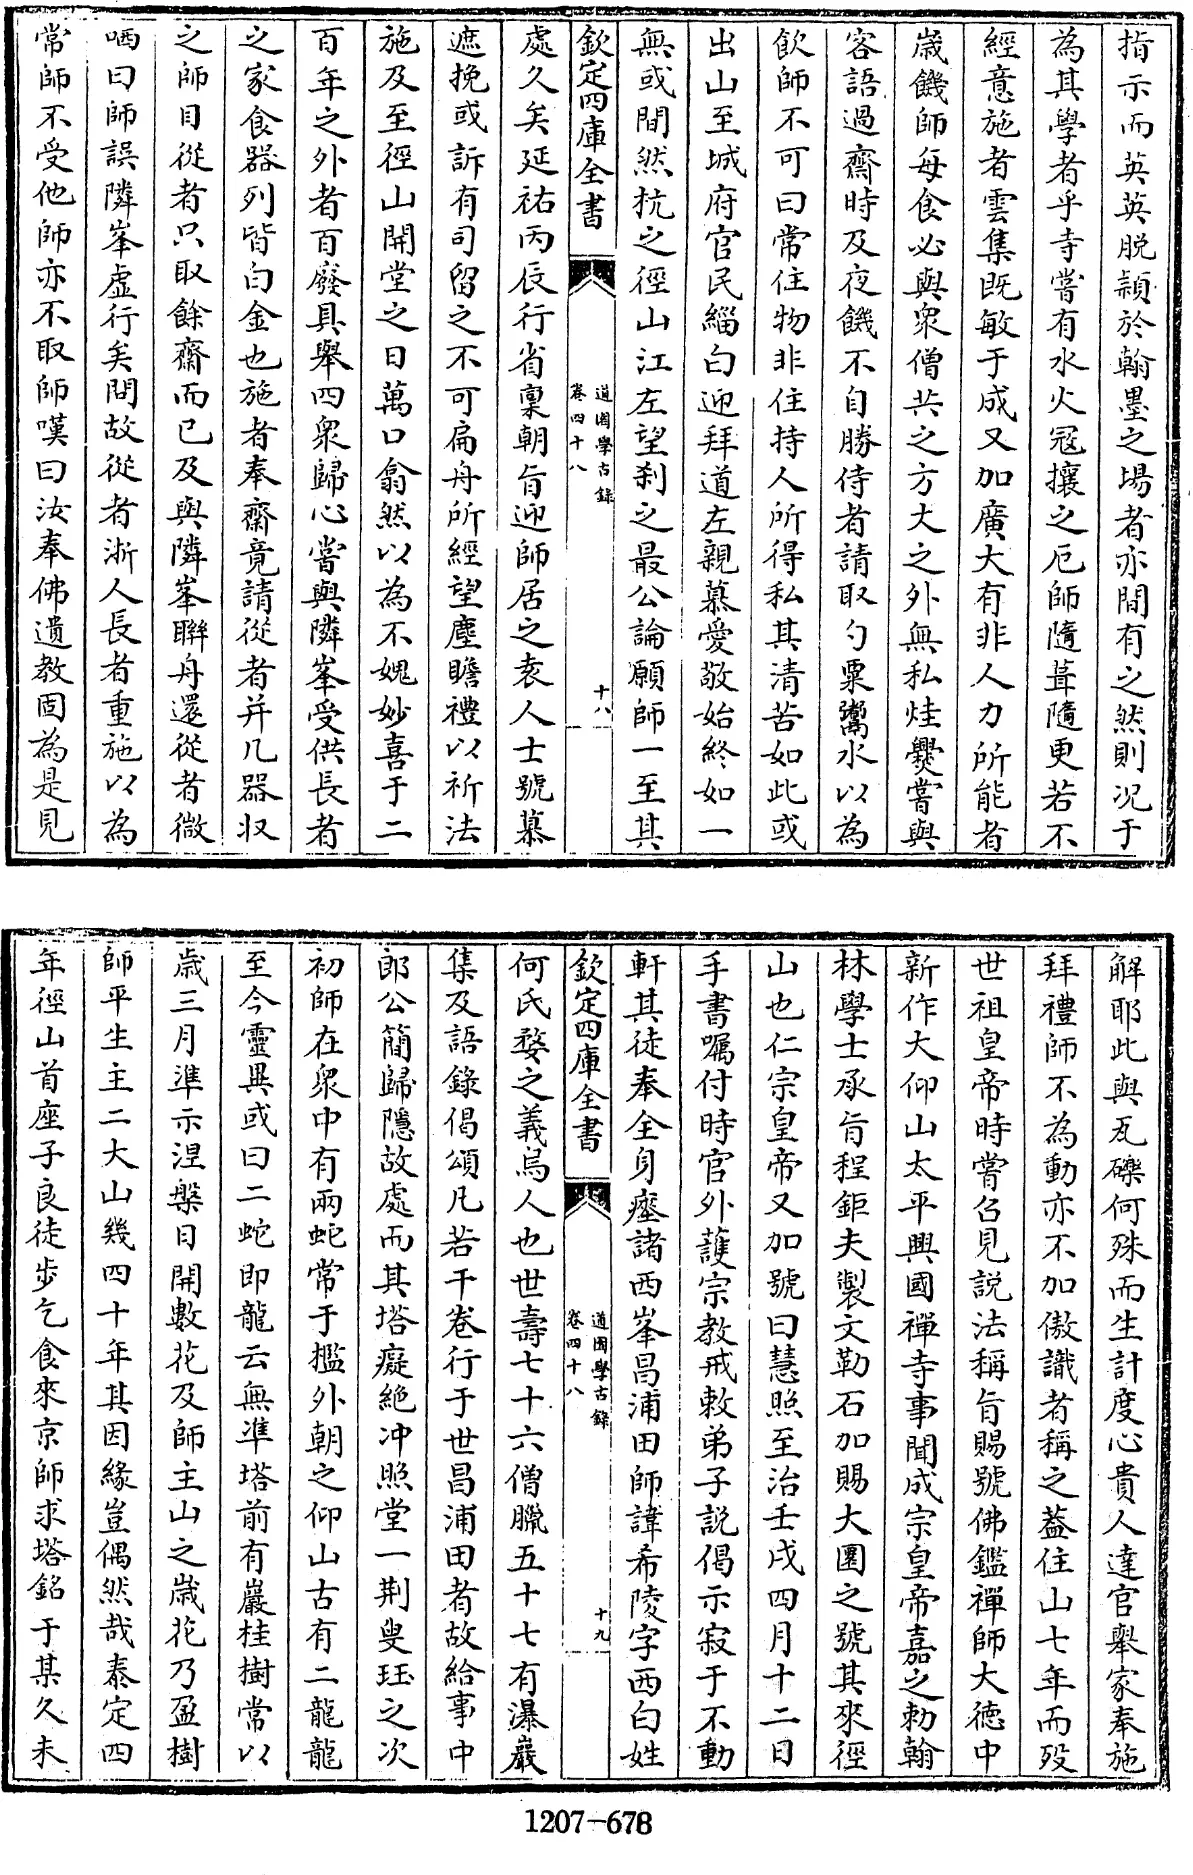 指示而英英脱頴於翰墨之場者亦間有之然則况于
為其學者乎寺嘗有水火冦攘之厄師隨葺隨更若不
經意施者雲集既敏于成又加廣大有非人力所能者
歳饑師每食必與衆僧共之方大之外無私烓爨嘗與
客語過齋時及夜饑不自勝侍者請取勺粟鬻水以為
飲師不可曰常住物非住持人所得私其清苦如此或
出山至城府官民緇白迎拜道左親慕愛敬始終如一
無或間然杭之徑山江左望刹之最公論願師一至其
欽定四庫全書
道園學古錄
卷四十八
十八
處久矣延祐丙辰行省禀朝旨迎師居之袁人士號慕
遮挽或訴有司留之不可扁舟所經望塵瞻禮以祈法
施及至徑山開堂之日萬口翕然以為不媿妙喜于二
百年之外者百廢具舉四衆歸心嘗與隣峯受供長者
之家食器列皆白金也施者奉齋竟請從者并几器収
之師目從者只取餘齋而已及與隣峯聨舟還從者微
哂曰師誤隣峯虚行矣問故從者浙人長者重施以為
常師不受他師亦不取師嘆曰汝奉佛遺教固為是見
解耶此與瓦礫何殊而生計度心貴人達官舉家奉施
拜禮師不為動亦不加傲識者稱之葢住山七年而殁
世祖皇帝時嘗召見説法稱旨賜號佛鑑禪師大徳中
新作大仰山太平興國禪寺事聞成宗皇帝嘉之勅翰
林學士承旨程鉅夫製文勒石加賜大圓之號其來徑
山也仁宗皇帝又加號曰慧照至治壬戌四月十二日
手書囑付時官外護宗教戒敕弟子説偈示寂于不動
軒其徒奉全身瘞諸西峯昌浦田師諱希陵字西白姓
欽定四庫全書
道園學古錄
卷四十八
十九
何氏婺之義烏人也世壽七十六僧臘五十七有瀑巖
集及語錄偈頌凡若干卷行于世昌浦田者故給事中
郎公簡歸隱故處而其塔癡絶冲照堂一荆叟珏之次
初師在衆中有兩蛇常于檻外朝之仰山古有二龍龍
至今靈異或曰二蛇即龍云無凖塔前有巖桂樹常以
歳三月準示涅槃日開數花及師主山之歳花乃盈樹
師平生主二大山幾四十年其因緣豈偶然哉泰定四
年徑山首座子良徒步乞食來京師求塔銘于某久未
1207-678